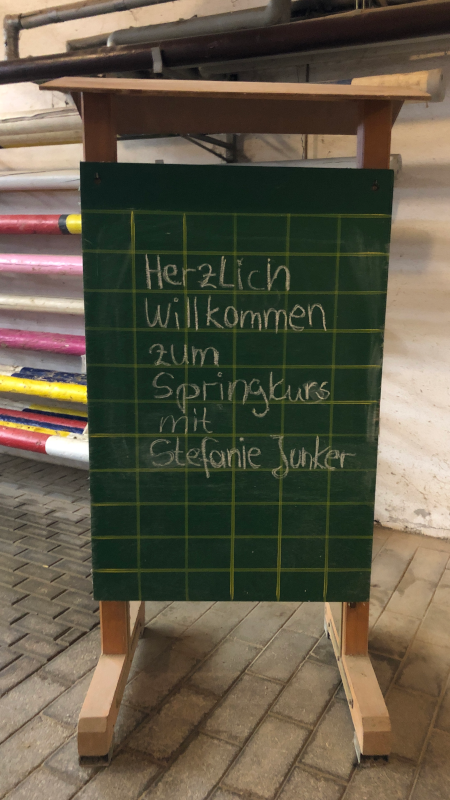 Herzlich
Willkommen
zum
Springkurs
mit
Stefanie Junker